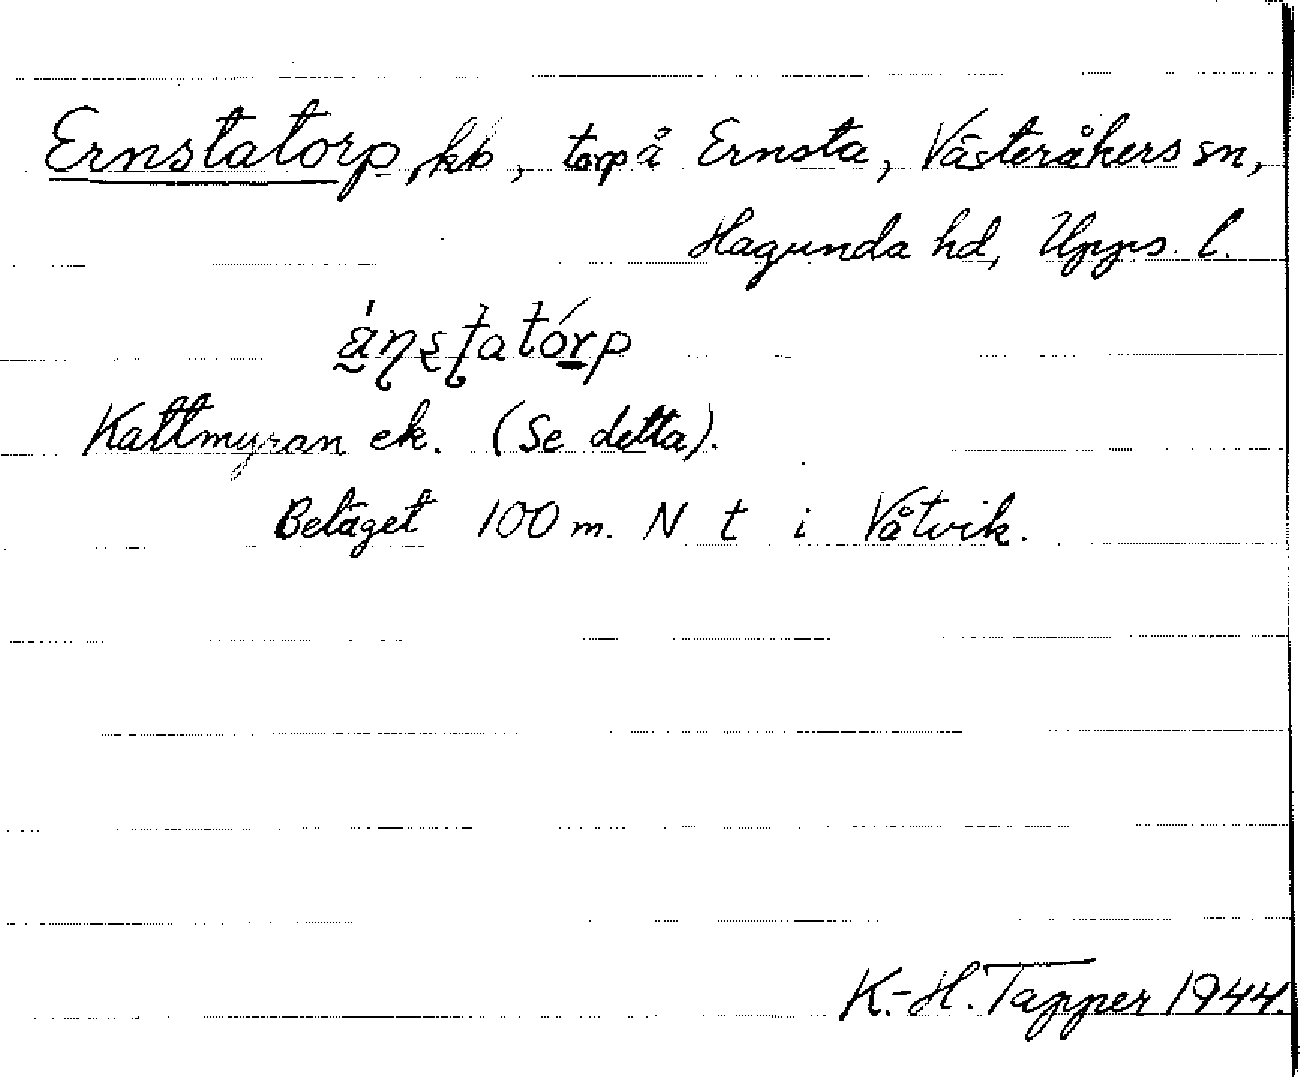 Ernstatorp, kb, torp å Ernsta, Västeråkers sn,
Hagunda hd, Upps. l.
Kattmyran ek. (Se detta).
Beläget 100 m. N t i Våtvik.
K.-H. Tapper 1944.